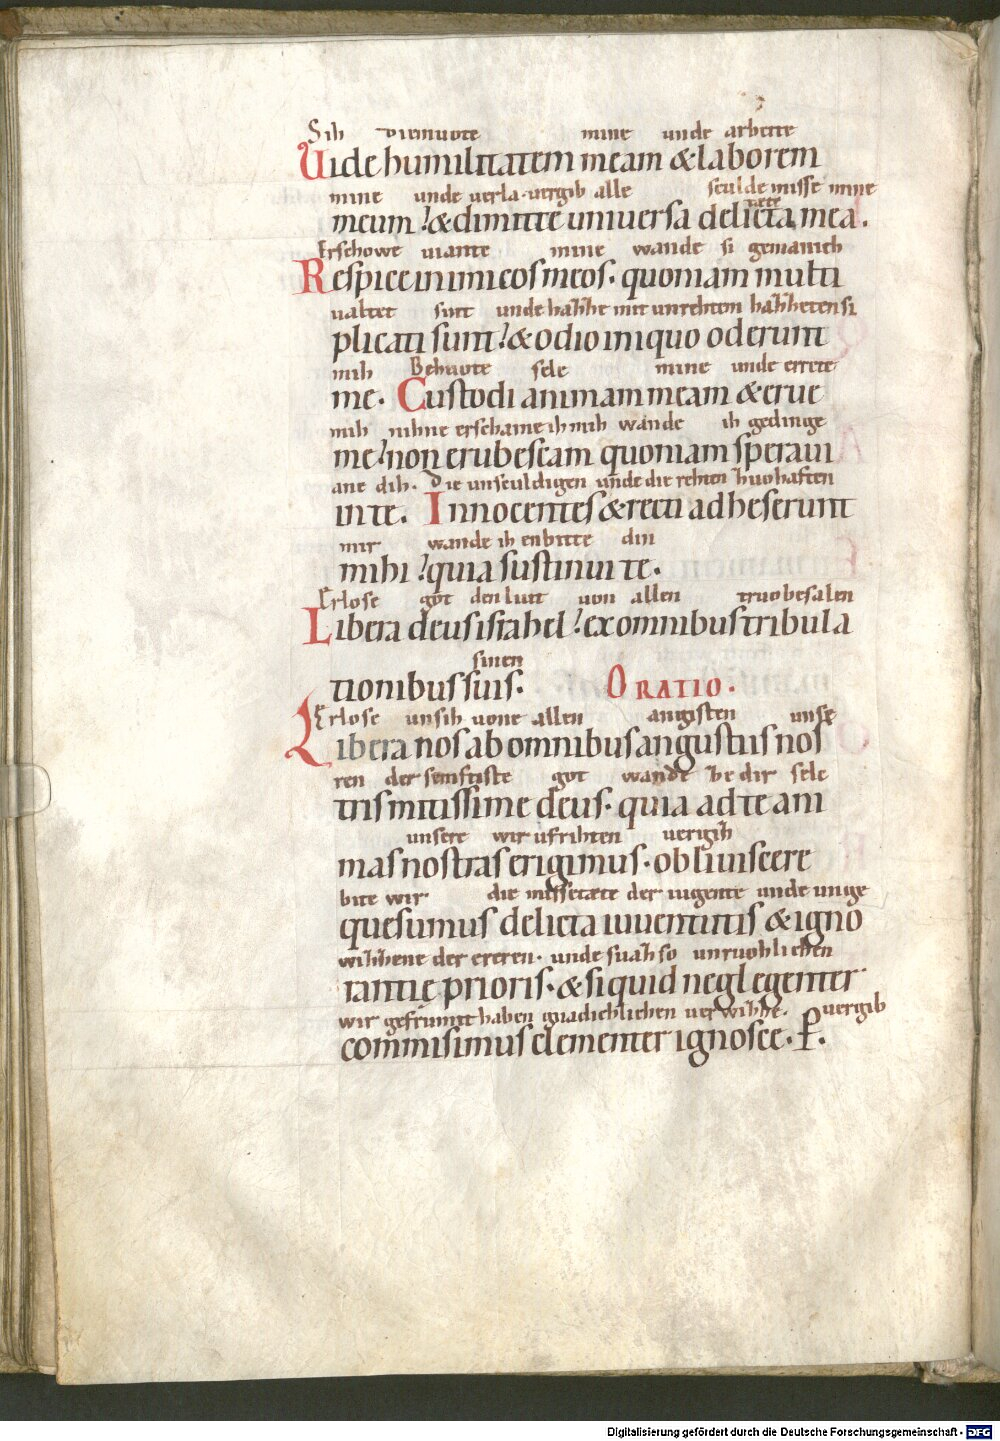 Sih diemuote mine unde arbeite
Uide humilitatem meam & laborem
mine unde uerla. uergib alle sculde misse mine
tæte
meum? & dimitte uniuersa delicta mea.
Erschowe uiante mine wande si gemanich
Respice inimicos meos. quoniam multi
ualtet sint unde hazze mit unrehtem hazzeten si
plicati sunt? & odio iniquo oderunt
mih Behuote sele mine unde errete
me. Custodi animam meam & erue
mih nihne erschame ih mih wande ih gedinge
me? non erubescam quoniam speraui
ane dih. die unsculdigen unde die rehten zuohaften
in te. Innocentes & recti adheserunt
mir wande ih enbitte din
mihi? quia sustinui te.
Erlose got den liut uon allen truobesalen
Libera deus israhel? ex omnibus tribula
sinen
tionibus suis. ORATIO.
Erlose unsih uone allen angisten unse
Libera nos ab omnibus angustiis nos
ren der semftiste got wande ze dir sele
tris mitissime deus. quia ad te ani
unsere wir ufrihten uergizz
mas nostras erigimus. obliuiscere
bite wir die missetæte der iugente unde unge
quesumus delicta iuuentutis & igno
wizzene der ereren. unde suaz so unruohlichen
rantie prioris. & siquid neglegenter
wir gefrumit haben gnadichlichen uerwizze. uergib
commisimus clementer ignosce. P.
Digitalisierung gefördert durch die Deutsche Forschungsgemeinschaft - DFG